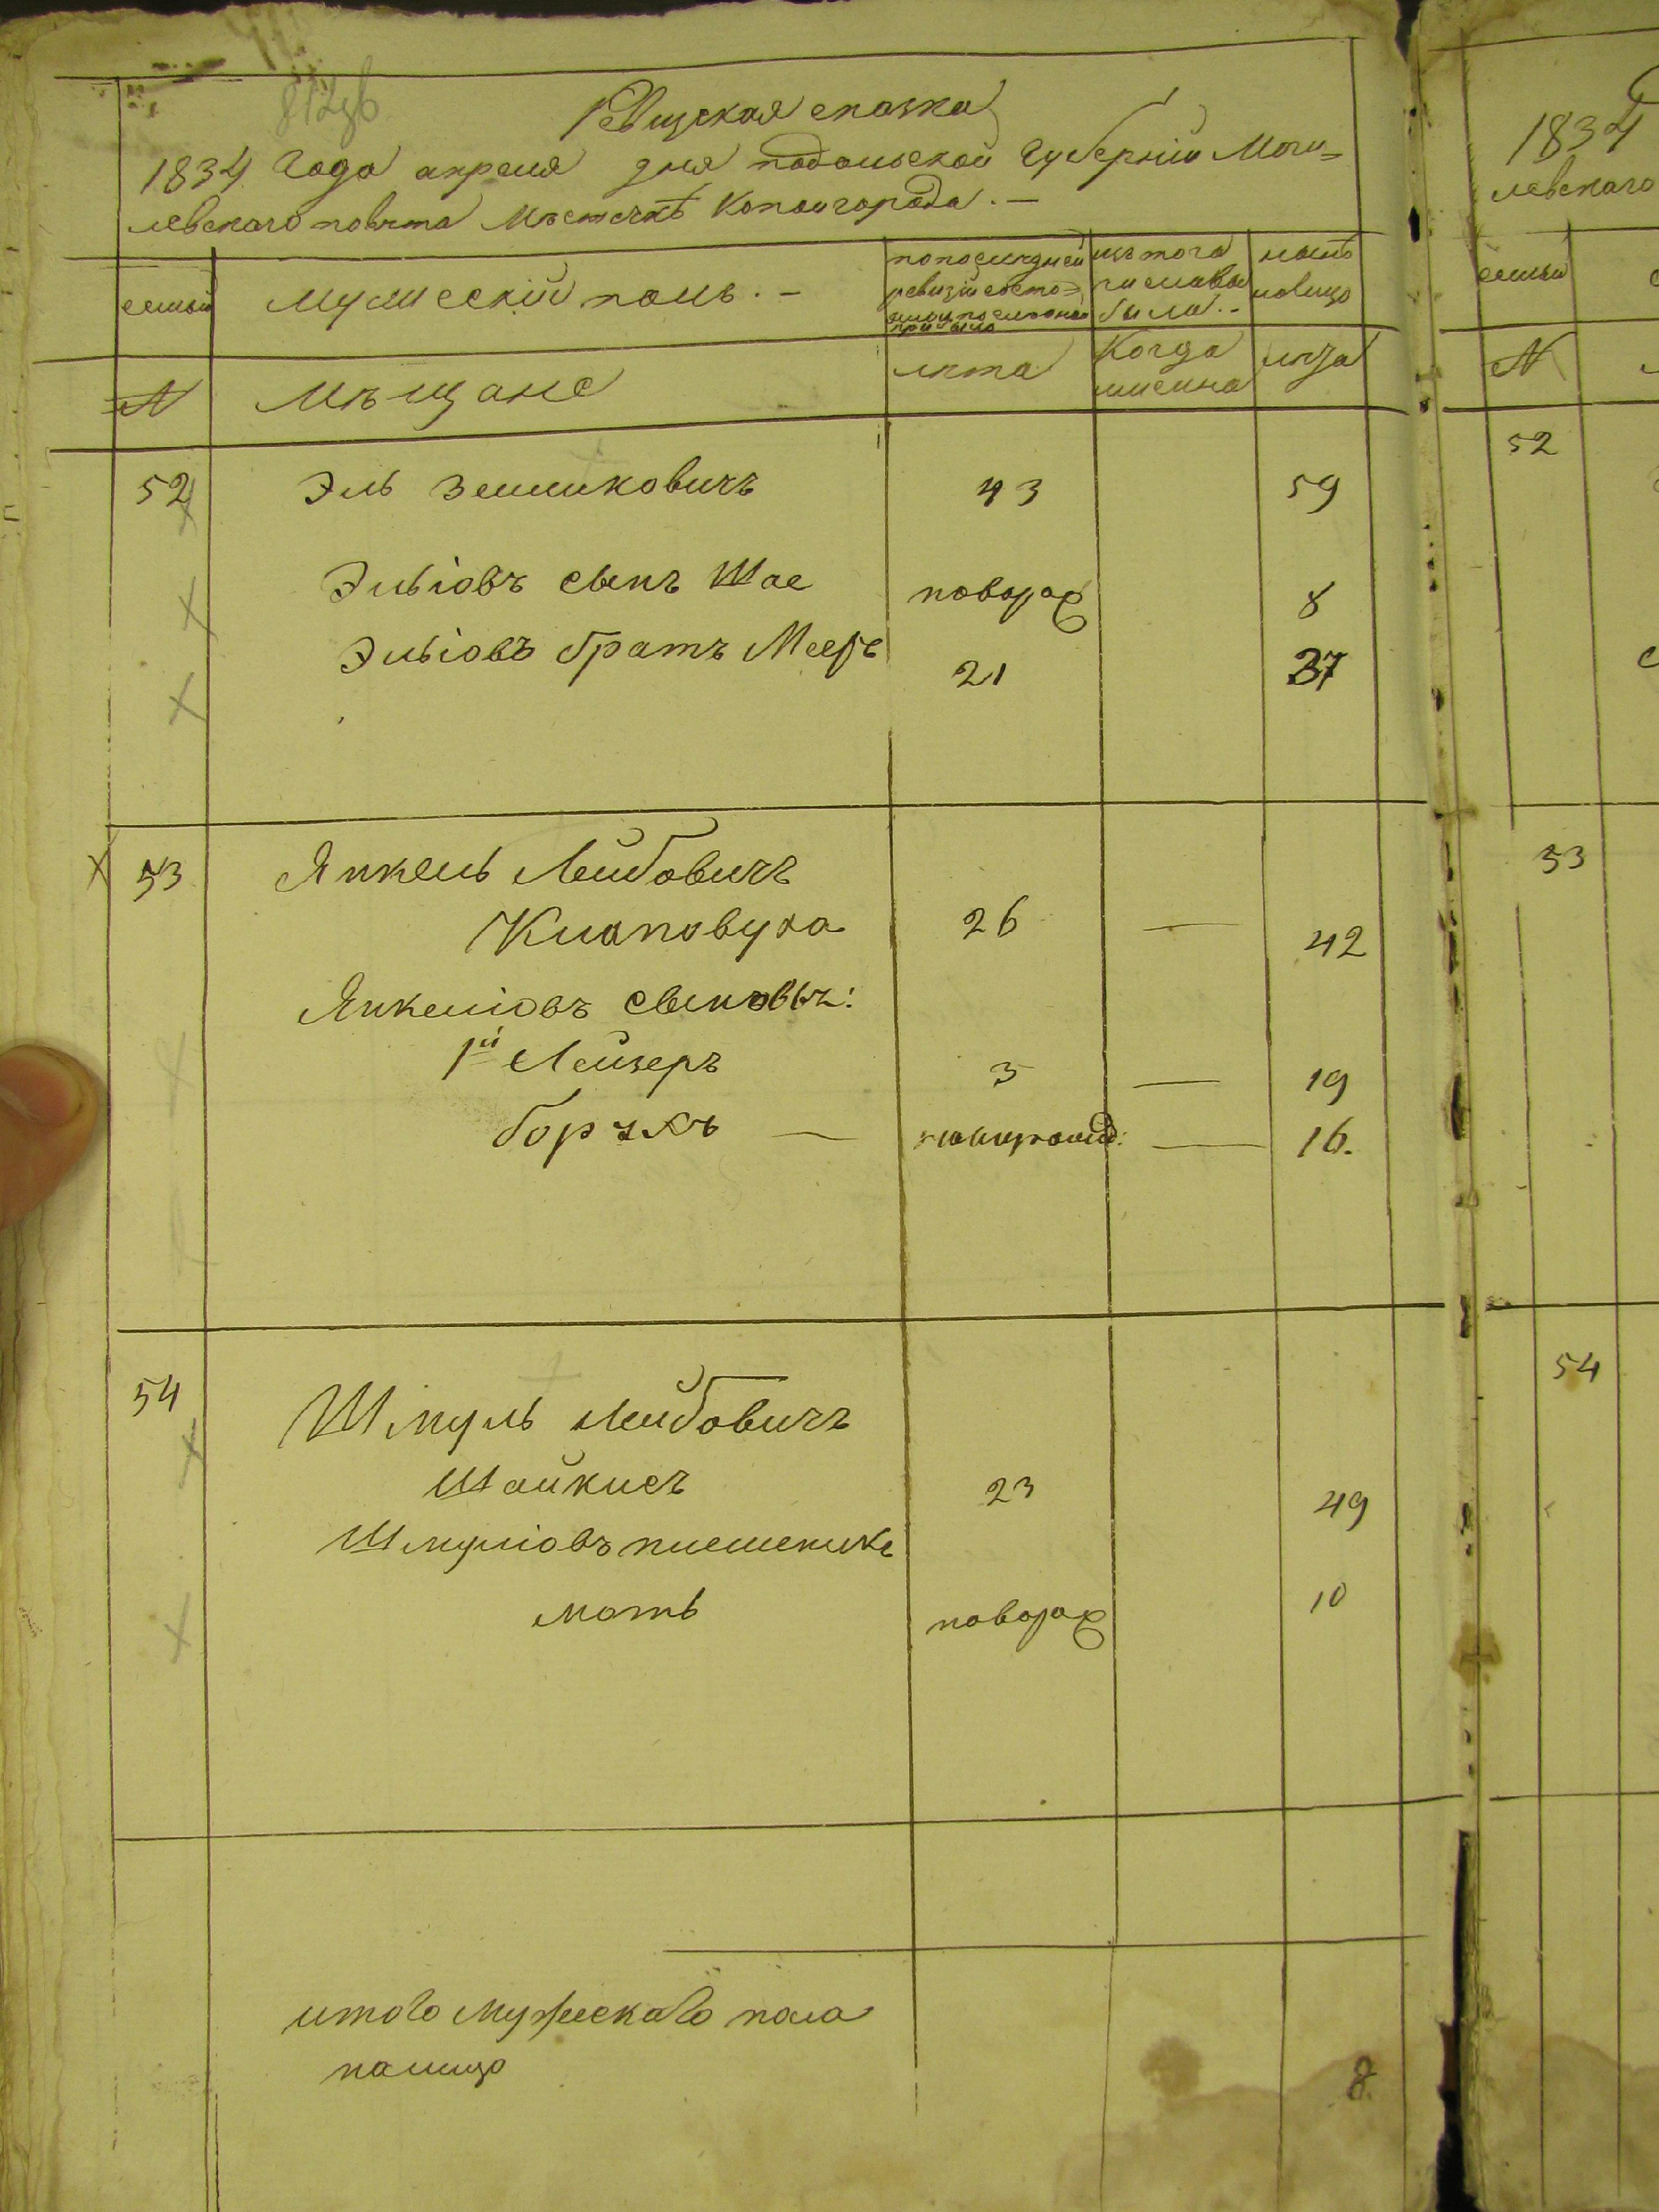 Ревизская сказка
1834 года апреля дня подольской Губернии Моги=
левского повѣта Мѣстечкѣ Копайгорода. —
семьи Мужеский полъ. — по последней ревизіи состо= изъ того числа выбыло. — нынѣ на лицо
№ Мѣщане лѣта Когда именно лѣта
52 Эль Зельиковичъ 43 59
Эльіовъ сынъ Шае новорож 8
Эльіовъ братъ Мееръ 21 37
53 Янкель Лейбовичъ
Клаповуха 26 — 42
Янкеліовъ сыновья:
1й Лейзеръ 3 — 19
— — 16.
54 Шмуль Лейбовичъ
Шайкисъ 23 49
Шмуліовъ племеникъ
Моть новорож 10
итого мужескаго пола
на лицо 8
1834
левскаго
семьи
№
52
53
54